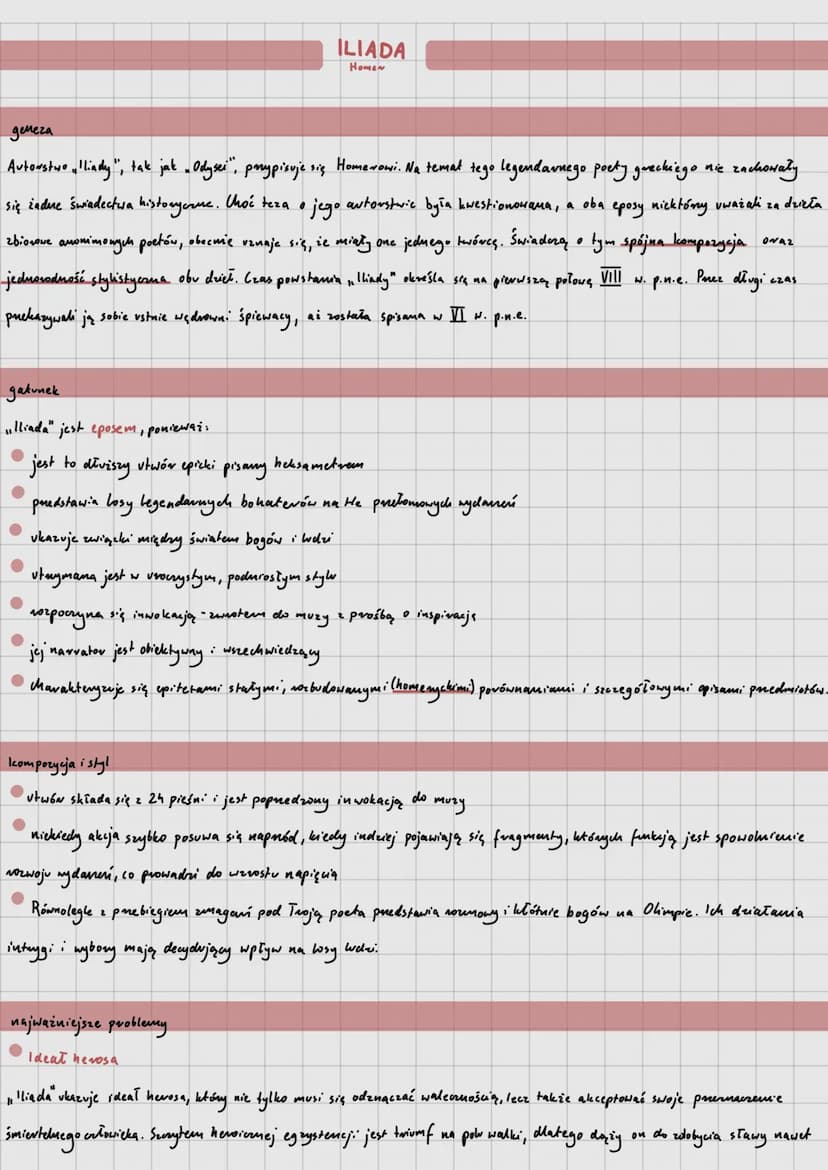 ILIADA
Homer
geneza
Autorstwo „Iliady", tak jak „Odysei", przypisuje się Homerowi. Na temat tego legendarnego poety greckiego nie zachowały
się żadne świadectwa historyczne. Choć teza o jego autorstwie była kwestionowana, a oba eposy niektórzy uważali za dzieła
zbiorowe anonimowych poetów, obecnie uznaje się, że miały one jednego twórcę. Świadczą o tym spójna kompozycja oraz
jednorodność stylistyczna obu dzieł. Czas powstania „Iliady" określa się na pierwszą połowę VIII w. p.n.e. Przez długi czas
przekazywali ją sobie ustnie wędrowni śpiewacy, aż została spisana w VI w. p.n.e.
gatunek
„Iliada" jest eposem, ponieważ:
jest to dłuższy utwór epicki pisany heksametrem
przedstawia losy legendarnych bohaterów na tle przełomowych wydarzeń
ukazuje związki między światem bogów i ludzi
utrzymana jest w uroczystym, podniosłym stylu
rozpoczyna się inwokacją - zwrotem do muzy z prośbą o inspirację
jej narrator jest obiektywny i wszechwiedzący
charakteryzuje się epitetami stałymi, rozbudowanymi (homeryckimi) porównaniami i szczegółowymi opisami przedmiotów.
kompozycja i styl
utwór składa się z 24 pieśni i jest poprzedzony inwokacją do muzy
niekiedy akcja szybko posuwa się naprzód, kiedy indziej pojawiają się fragmenty, których funkcją jest spowolnienie
rozwoju wydarzeń, co prowadzi do wzrostu napięcia
Równolegle z przebiegiem zmagań pod Troją poeta przedstawia rozmowy i kłótnie bogów na Olimpie. Ich działania
intrygi i wybory mają decydujący wpływ na losy ludzi.
najważniejsze problemy
Ideał herosa
„Iliada" ukazuje ideał herosa, który nie tylko musi się odznaczać walecznością, lecz także akceptować swoje przeznaczenie
śmiertelnego człowieka. Szczytem heroicznej egzystencji jest triumf na polu walki, dlatego dąży on do zdobycia sławy nawet